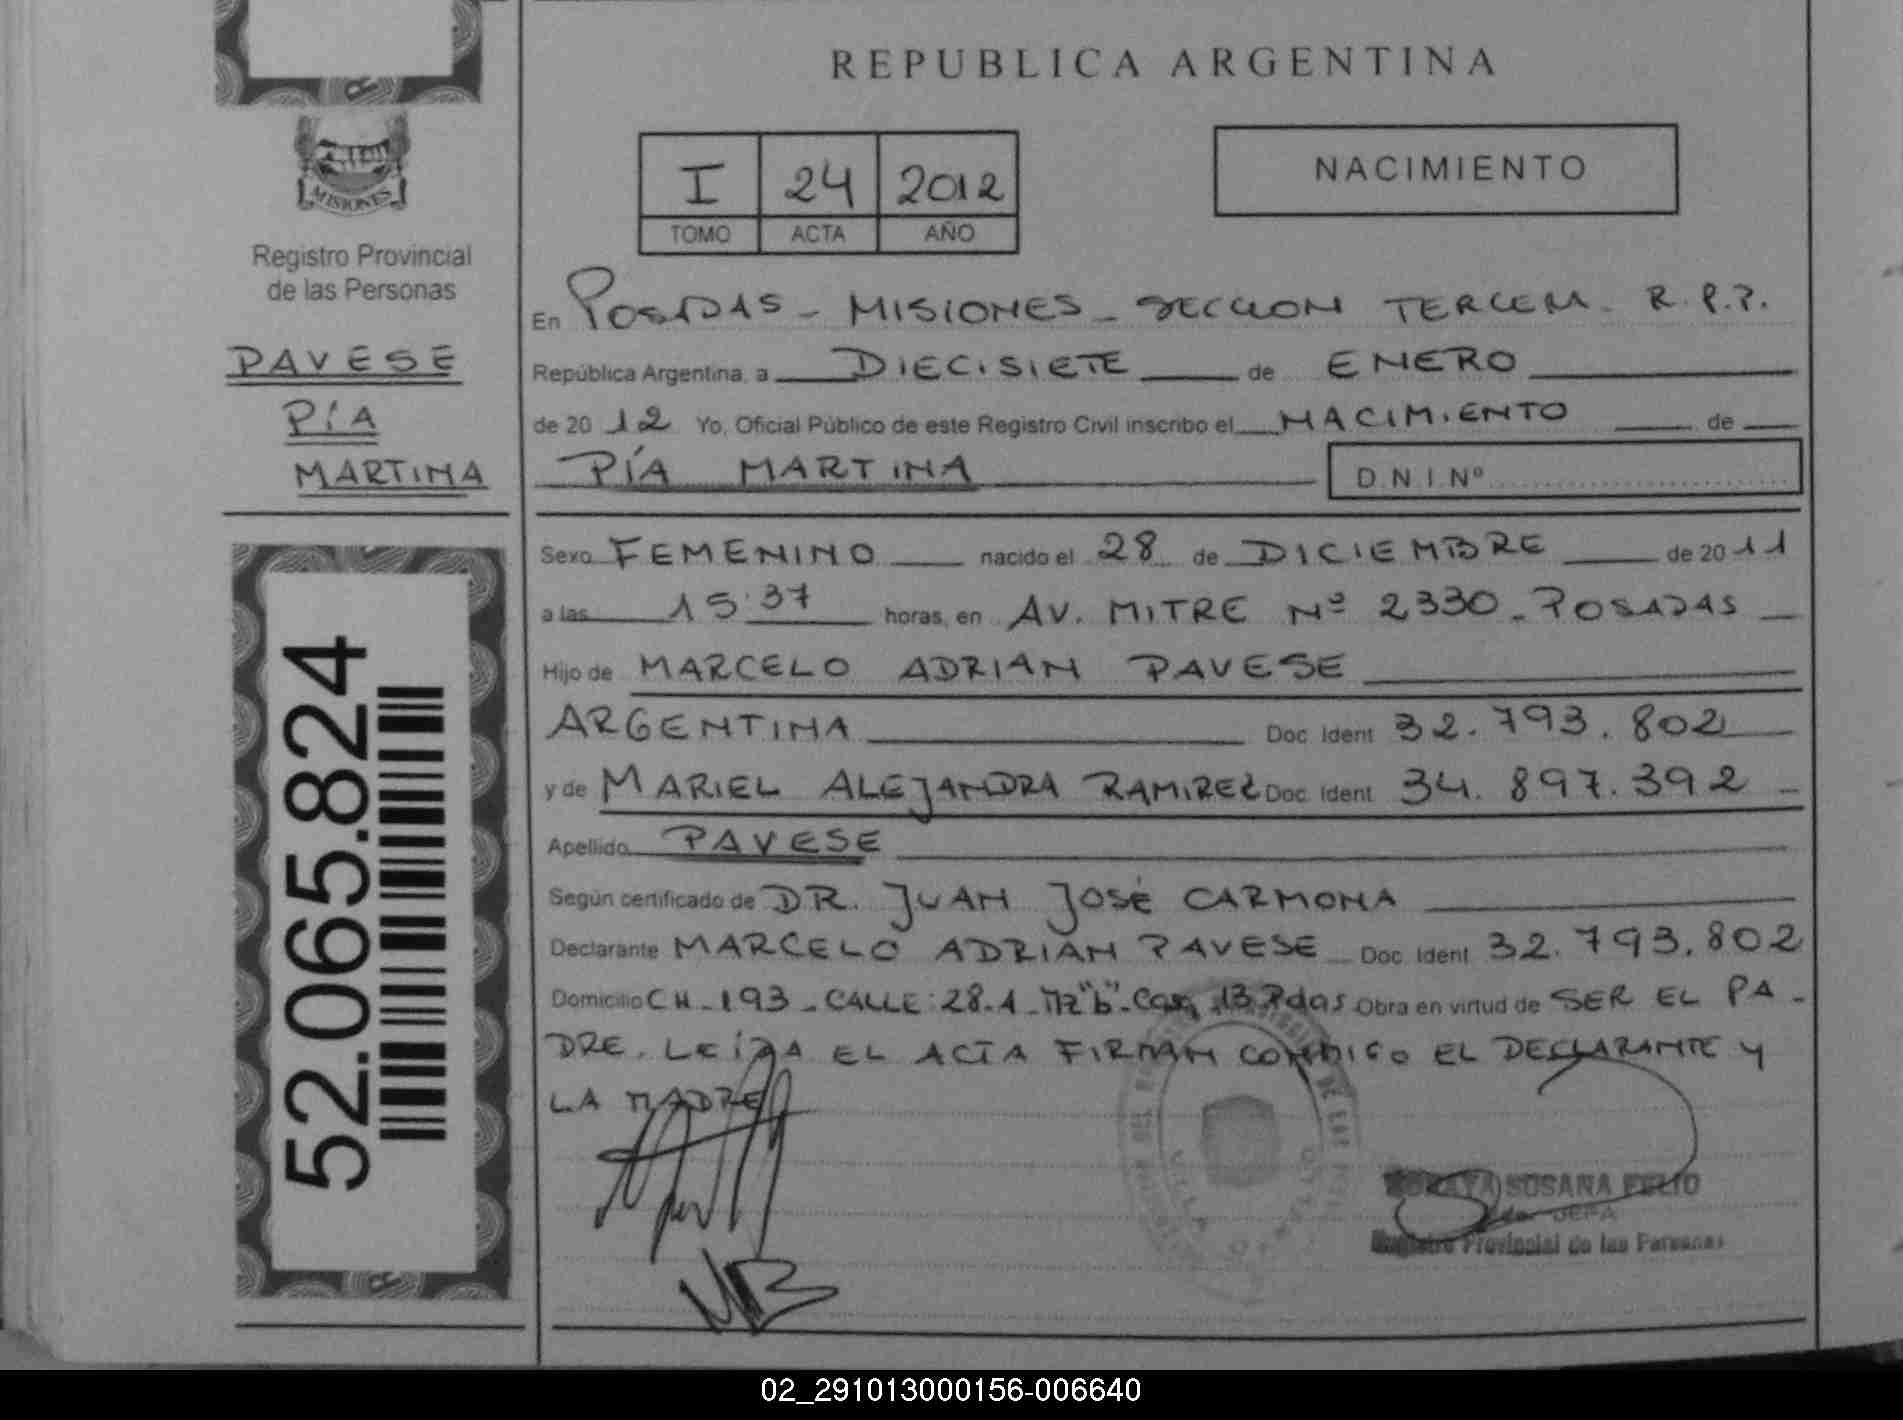 REPUBLICA ARGENTINA
I 24 2012
TOMO ACTA AÑO
NACIMIENTO
MISIONES
Registro Provincial
de las Personas
PAVESE
PÍA
MARTINA
52.065.824
En POSADAS - MISIONES - SECCION TERCERA - R.P.P.
República Argentina, a DIECISIETE de ENERO
de 2012 Yo, Oficial Público de este Registro Civil inscribo el NACIMIENTO de
PÍA MARTINA D.N.I.Nº
Sexo FEMENINO nacido el 28 de DICIEMBRE de 2011
a las 15:37 horas, en AV. MITRE Nº 2330 - POSADAS
Hijo de MARCELO ADRIAN PAVESE
ARGENTINA Doc Ident 32.793.802
y de MARIEL ALEJANDRA RAMIREZ Doc Ident 34.897.392 -
Apellido PAVESE
Según certificado de DR. JUAN JOSÉ CARMONA
Declarante MARCELO ADRIAN PAVESE Doc Ident 32.793.802
Domicilio CH - 193 - CALLE: 28-A - Mz "b" - Casa 13 Pdas Obra en virtud de SER EL PA-
DRE. LEÍDA EL ACTA FIRMAN CONMIGO EL DECLARANTE Y
LA MADRE
SUSANA
JEFA
Registro Provincial de las Personas
02_291013000156-006640